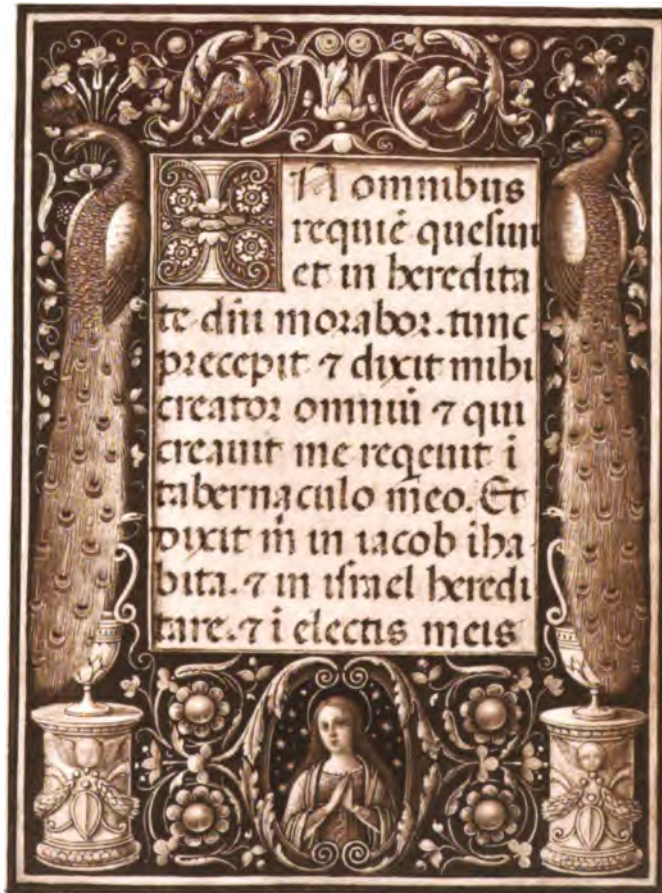 IN omnibus
requiē quesiui
et in heredita
te dñi morabor. tunc
precepit ⁊ dixit mihi
creator omniũ ⁊ qui
creauit me reqeuit ī
tabernaculo meo. Et
dixit m̄ in iacob iha
bita. ⁊ in israel heredi
tare. ⁊ ī electis meis